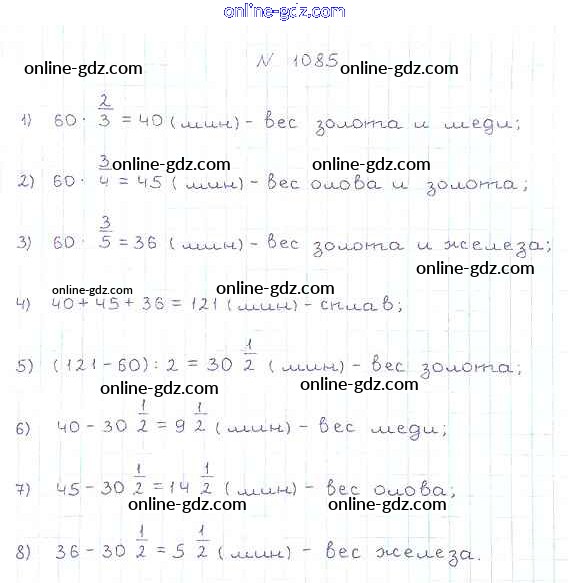 online-gdz.com
N 1085
online-gdz.com online-gdz.com
1) 60 · 2/3 = 40 (мин) - вес золота и меди;
online-gdz.com online-gdz.com
2) 60 · 3/4 = 45 (мин) - вес олова и золота;
3) 60 · 3/5 = 36 (мин) - вес золота и железа;
online-gdz.com
online-gdz.com online-gdz.com
4) 40 + 45 + 36 = 121 (мин) - сплав;
5) (121 - 60) : 2 = 30 1/2 (мин) - вес золота;
online-gdz.com online-gdz.com
6) 40 - 30 1/2 = 9 1/2 (мин) - вес меди;
7) 45 - 30 1/2 = 14 1/2 (мин) - вес олова;
online-gdz.com online-gdz.com
8) 36 - 30 1/2 = 5 1/2 (мин) - вес железа.